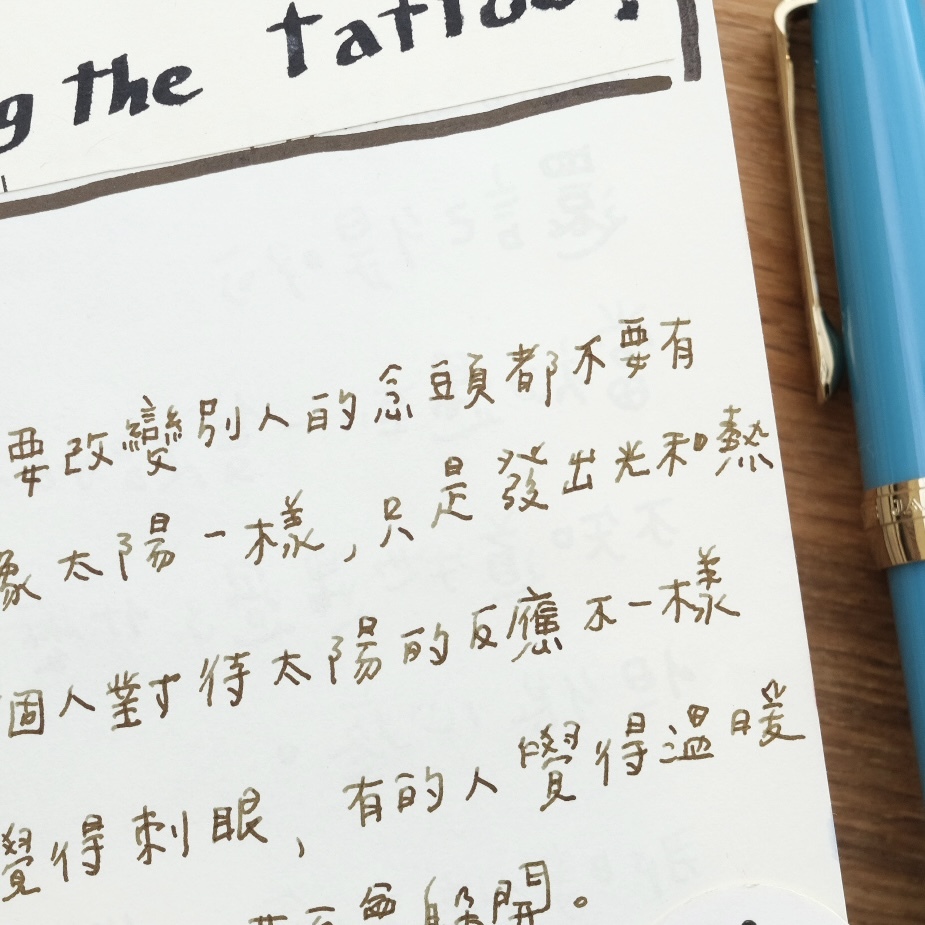 g the Tattoo?
要改變別人的念頭都不要有
像太陽一樣，只是發出光和熱
個人對待太陽的反應不一樣
覺得刺眼，有的人覺得溫暖
躲開。